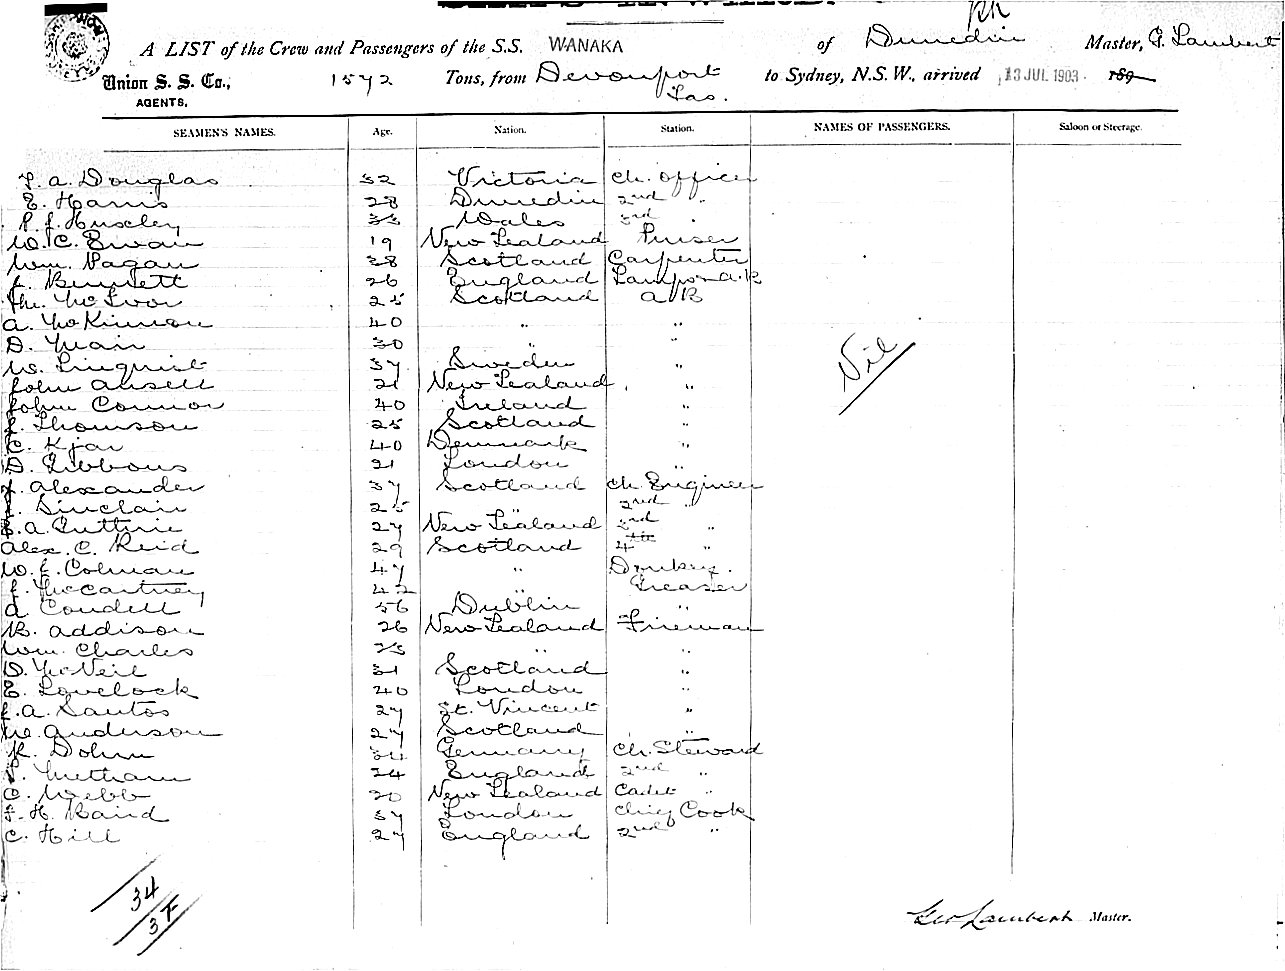 A LIST of the Crew and Passengers of the S.S. WANAKA of Dunedin Master, G. Lambert
Union S. S. Co., 1572 Tons, from Devonport to Sydney, N.S.W., arrived 13 JUL 1903 189
Tas.
AGENTS,
SEAMEN'S NAMES. Age. Nation. Station. NAMES OF PASSENGERS. Saloon or Steerage.
T. A. Douglas 32 Victoria Ch. Officer
E. Harris 28 Dunedin 2nd "
P. J. Huxley 33 Wales 3rd "
W. C. Ewan 19 New Zealand Purser
Wm. Pagan 38 Scotland Carpenter
J. Bennett 26 England Lamps & A.B
McIvor 25 Scotland A B
A. McKinnon 40 " "
D. Mair 30 " "
W. Linquist 37 Sweden "
John Ansell 21 New Zealand "
John Connor 40 Ireland "
J. Thomson 25 Scotland "
C. Kjar 40 Denmark "
D. Gibbons 21 London "
J. Alexander 37 Scotland Ch. Engineer
J. Sinclair 25 " 2nd "
E. A. Guthrie 27 New Zealand 3rd "
Alex. C. Reid 29 Scotland 4th "
W. J. Colman 47 " Donkey.
J. McCartney 42 " Greaser
A. Condell 56 Dublin "
R. Addison 26 New Zealand Fireman
Wm. Charles 23 " "
D. McNeil 31 Scotland "
E. Lovelock 40 London "
J. A. Santos 27 St. Vincent "
Anderson 27 Scotland "
K. Dohm 34 Germany Ch. Steward
Metham 24 England 2nd "
C. Webb 20 New Zealand Cadet "
J. H. Baird 37 London Chief Cook
C. Hill 27 England 2nd "
Nil
34
Geo Lambert Master.